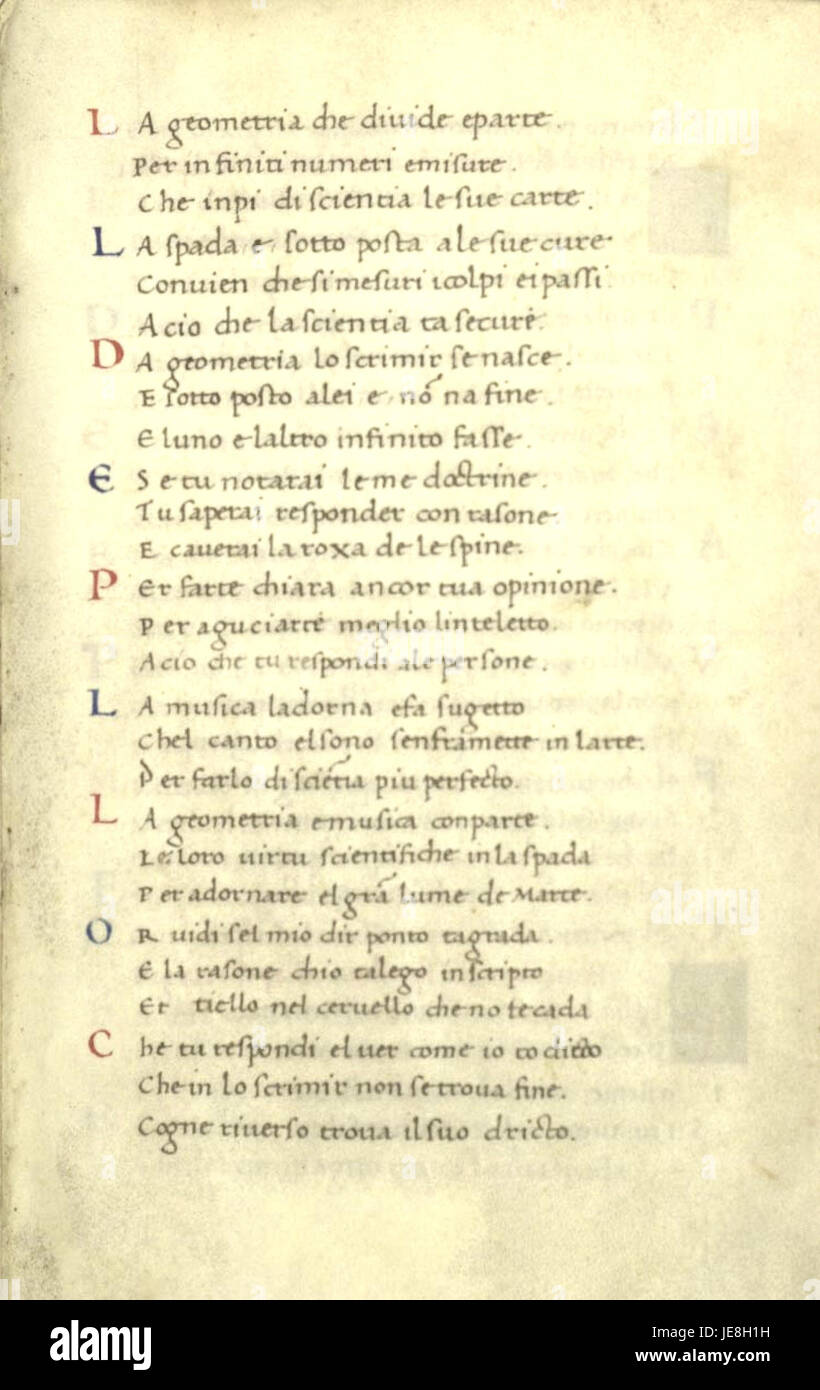 LA geometria che diuide eparte.
Per infiniti numeri emisure.
Che inpi di scientia le sue carte.
LA spada e sotto posta ale sue cure
Conuien che si mesuri icolpi ei passi
Acio che la scientia ta secure.
DA geometria lo scrimir se nasce.
E sotto posto alei e nō na fine.
E luno e laltro infinito fasse.
E Se tu notarai le me doctrine.
Tu saperai responder con rasone
E cauerai la roxa de le spine.
PEr farte chiara ancor tua opinione.
Per aguciarte meglio linteletto.
Acio che tu respondi ale persone.
LA musica ladorna efa sugetto
Chel canto el sono senframette in larte.
Per farlo di sciētia piu perfecto.
LA geometria emusica conparte.
Le loro uirtu scientifiche in la spada
Per adornare el grā lume de Marte.
OR uidi sel mio dir ponto tagrada.
E la rasone chio talego in scripto
Et tiello nel ceruello che no te cada
Che tu respondi el uer come io to dicto
Che in lo scrimir non se troua fine.
Cogne riuerso troua il suo dricto.
alamy
alamy
alamy
a
alamy
Image ID: JE8H1H
www.alamy.com